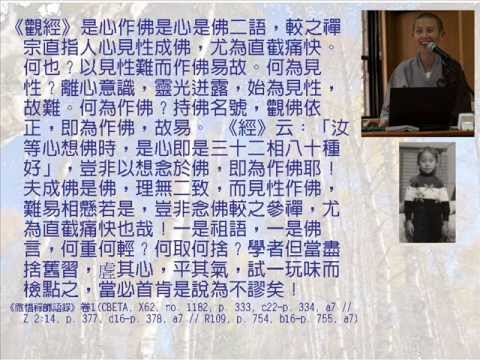 《觀經》是心作佛是心是佛二語，較之禪
宗直指人心見性成佛，尤為直截痛快。
何也？以見性難而作佛易故。何為見
性？離心意識，靈光迸露，始為見性，
故難。何為作佛？持佛名號，觀佛依
正，即為作佛，故易。《經》云：「汝
等心想佛時，是心即是三十二相八十種
好」，豈非以想念於佛，即為作佛耶！
夫成佛是佛，理無二致，而見性作佛，
難易相懸若是，豈非念佛較之參禪，尤
為直截痛快也哉！一是祖語，一是佛
言，何重何輕？何取何捨？學者但當盡
捨舊習，虛其心，平其氣，試一玩味而
檢點之，當必首肯是說為不謬矣！
《徹悟禪師語錄》卷1(CBETA, X62, no. 1182, p. 333, c22-p. 334, a7 //
Z 2:14, p. 377, c16-p. 378, a7 // R109, p. 754, b16-p. 755, a7)